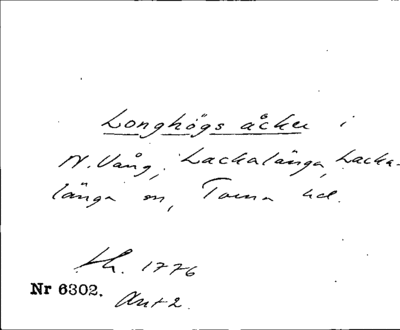 Longhögs åcker i
N. Vång, Lackalänga, Lacka-
länga sn, Torna hd.
Sk. 1776
Nr 6302.
Akt 2.